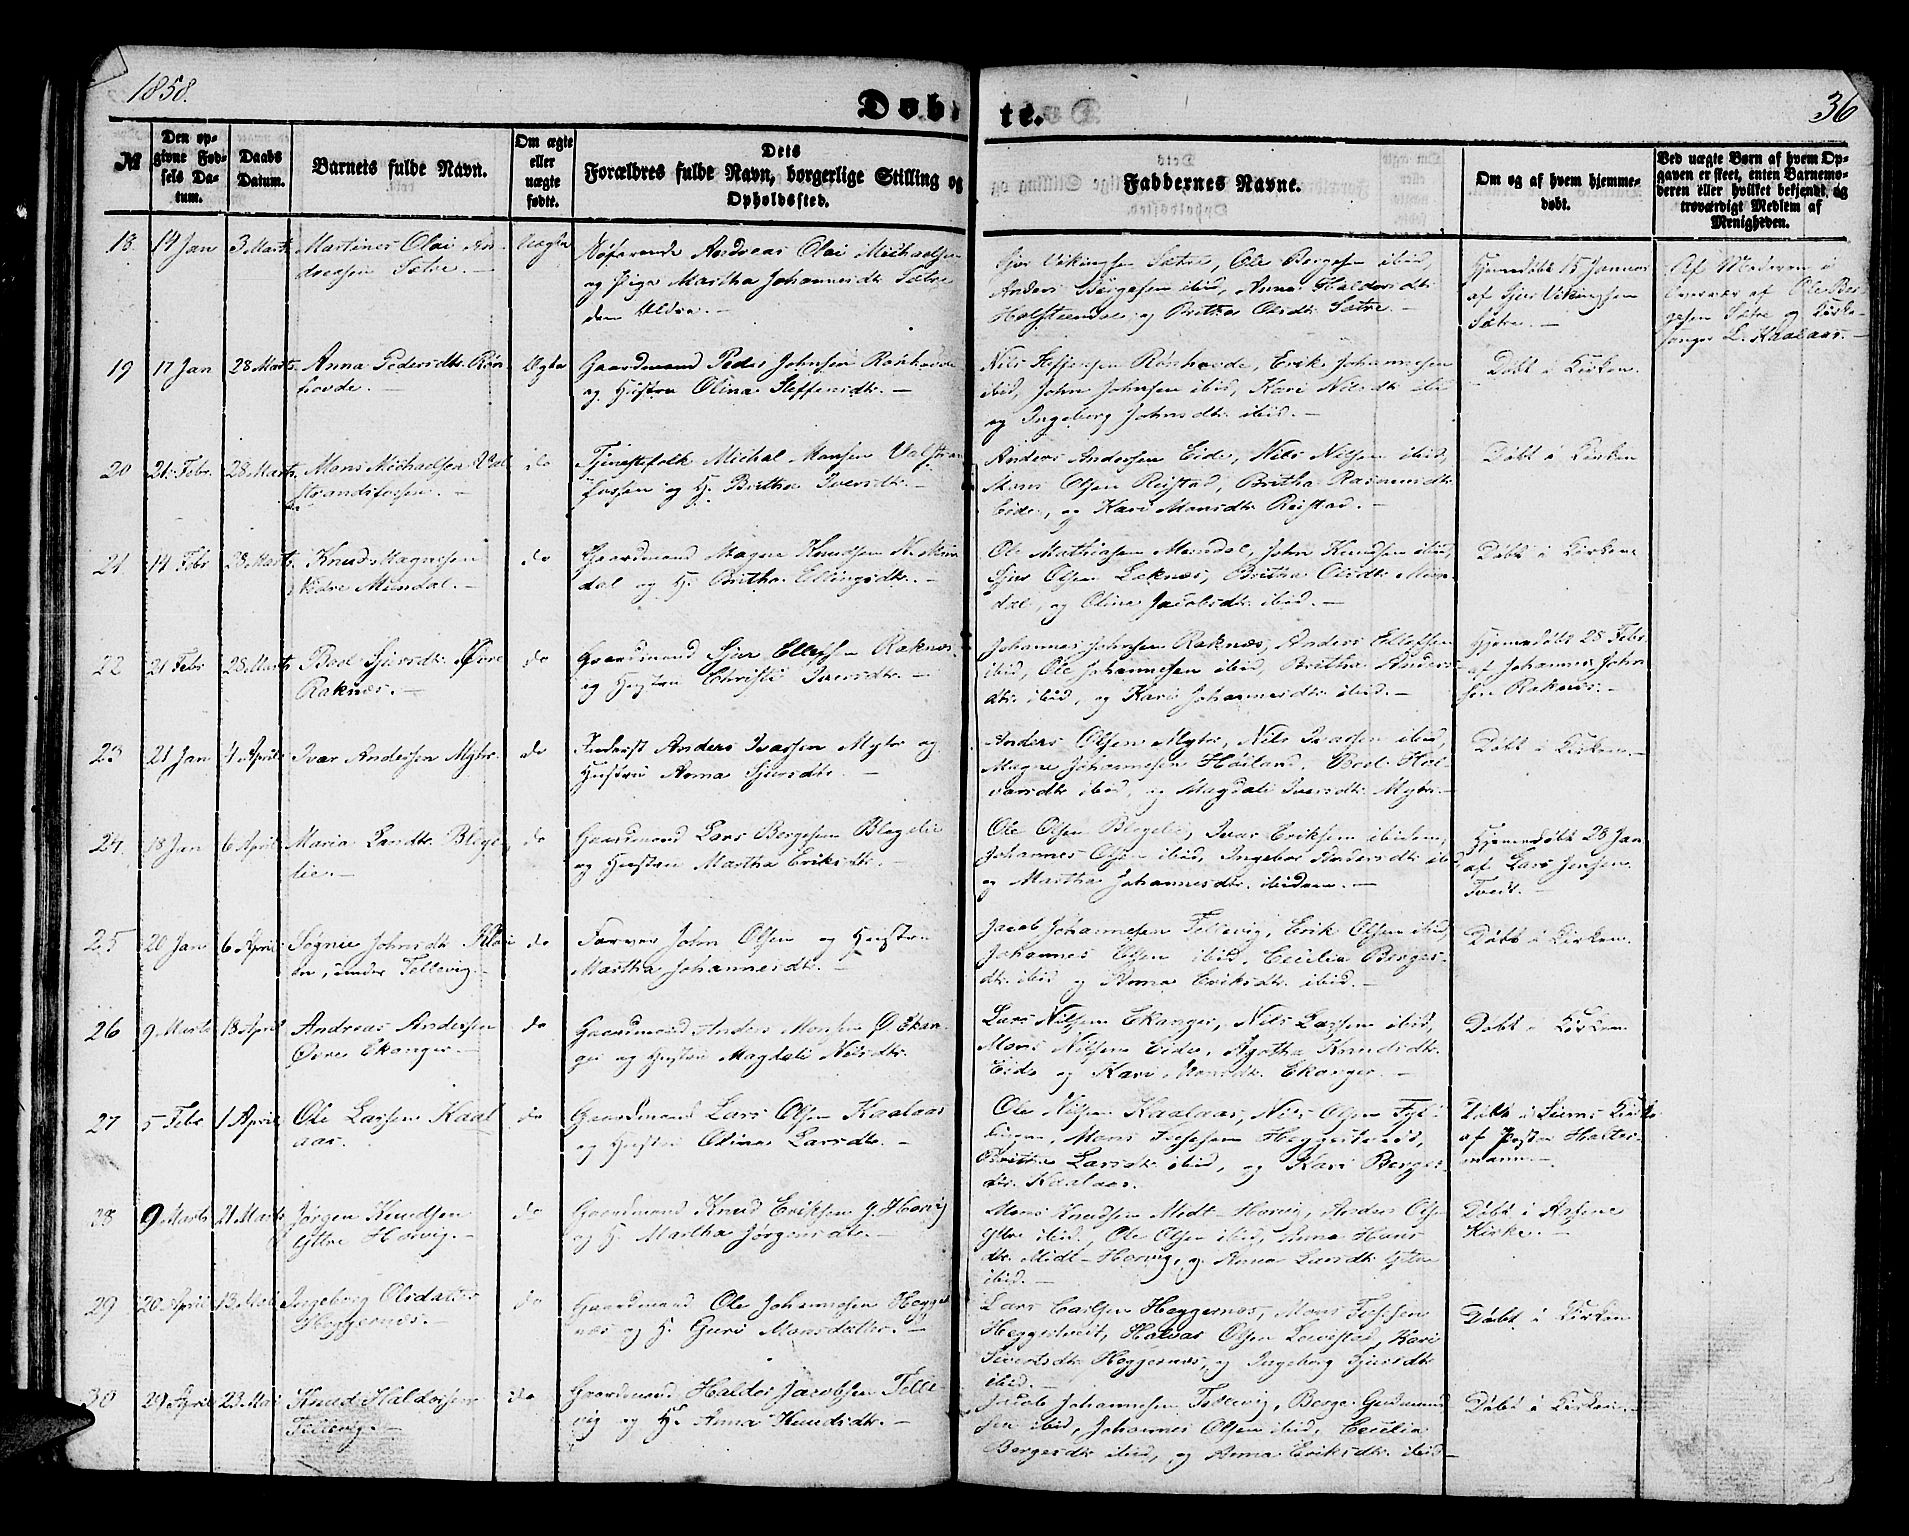 1858.
Døbte.
36
№
Den opgivne Fødsels Datum.
Daabs Datum.
Barnets fulde Navn.
Om ægte eller uægte fødte.
Dets Forældres fulde Navn, borgerlige Stilling og Opholdssted.
Faddernes Navne.
Om og af hvem hjemmedøbt.
Ved uægte Børn af hvem Opgaven er skeet, enten Barnemoderen eller hvilket bekjendt og troværdigt Medlem af Menigheden.
18. 14 Jan 3 Marts Martines Olai An-
dreassen Sætre. —
Uægte
Søfarende Andreas Olai Michaelsen
og Pige Martha Johannesdtr Sætre
Sjur Vikingsen Sætre, Ole Børgesen ibid,
Anders Børgesen ibid, Anna Haldorsdtr
Holsteendal og Brithe Olsdtr Sætre. —
Hjemmedøbt 15 Januar
af Sjur Vikingsen
Sætre. —
Af Moderen i
Overvær af Ole Bør-
gesen Sætre og Kirke-
sanger L. Kaalaas. —
19 17 Jan 28 Marts Anna Pedersdtr. Røn-
hovde. —
Ægte
Gaardmand Peder Johnsen Rønhovde
og Hustru Olina Steffensdtr. —
Nils Steffensen Rønhovde, Erik Johannesen
ibid, John Johnsen ibid, Kari Nilsdtr ibid
og Ingeborg Johnsdtr. ibid. —
Døbt i Kirken.
20 21 Febr 28 Marts Mons Michaelsen Val-
strandsfossen. —
do
Tjenestefolk Michal Monsen Valstran
fossen og H. Britha Iversdtr. —
Anders Andersen Eide, Nils Nilsen ibid,
Mons Olsen Reistad, Britha Rasmusdtr
Eide, og Kari Monsdtr Reistad. —
Døbt i Kirken
21 14 Febr 28 Marts Knud Magnesen
Nedre Mundal. —
do
Gaardmand Magne Knudsen Ne: Mun
dal og H. Britha Ellingsdtr. —
Ole Mathiasen Mundal, John Knudsen ibid,
Sjur Olsen Raknæs, Britha Olsdtr Mun-
dal, og Oline Jacobsdtr. ibid. —
Døbt i Kirken
22 21 Febr 28 Marts Brol Sjursdtr. Øvre
Raknæs. —
do
Gaardmand Sjur Raknæs
og Hustru Christi Iversdtr. —
Johannes Johnsen Raknæs, Anders
ibid, Ole Johannesen ibid, Britha Anders-
dtr. ibid, og Kari Johannesdtr ibid. —
Hjemmedøbt 28 Febr
af Johannes John
sen Raknæs. —
23 21 Jan 4 April Ivar Andersen Myhr.
do
Inderst Anders Ivarsen Myhr og
Hustru Anna Sjursdtr. —
Anders Olsen Myhr, Nils Ivarsen ibid,
Magne Johannesen Høiland, Brol Hal-
varsdtr ibid, og Magdali Iversdtr. Myhr. —
Døbt i Kirken. —
24. 18 Jan 6 April Maria Larsdtr. Blege-
lie. —
do
Gaardmand Lars Børgesen Blegelie
og Hustru Martha Eriksdtr. —
Ole Olsen Blegelie, Ivar Eriksen ibidem,
Johannes Olsen ibid, Ingebor Andersdtr ibid
og Martha Johannesdtr. ibidem. —
Hjemmedøbt 28 Jan
af Lars Jensen
Tveit. —
25 20 Jan 6 April Johnsdtr
under Tellevig. —
do
Farver John Olsen og Hustru
Martha Johannesdtr. —
Jacob Johannesen Tellevig, Erik Olsen ibid,
Johannes Olsen ibid, Cecilia Berges-
dtr. ibid og Anna Eriksdtr. ibid. —
Døbt i Kirken.
26 9 Marts 18 April Andreas Andersen
Øvre Ekanger. —
do
Gaardmand Anders Monsen Ø Ekan-
ger og Hustru Magdeli Nilsdtr.
Lars Nilsen Ekanger, Nils Larsen ibid,
Mons Nilsen Eide, Agatha Knudsdtr.
Eide og Kari Monsdtr. Ekanger. —
Døbt i Kirken
27 5 Febr 1 April Ole Larsen Kaal
aas. —
do
Gaardmand Lars Olsen Kaalaas
og Hustru Larsdtr. —
Ole Nilsen Kaalaas, Nils Olsen
Mons Heggertveit,
Brithe Larsdtr. ibid, og Kari Berges-
dtr. Kaalaas.
Døbt i Seims Kirke
af Pastor Halter-
mann. —
28 9 Marts 21 Marts Jørgen Knudsen
Yttre Horvig. —
do
Gaardmand Knud Eriksen Y. Horvig
og H. Martha Jørgensdatr. —
Mons Knudsen Midt-Horvig, Anders Ols
Yttre ibid, Ole Olsen ibid, Anna Hans
dtr. Midt-Horvig, og Anna Larsdtr Yttre
ibid. —
Døbt i Aasene
Kirke. —
29 20 April 13 Mai Ingeborg Olsdatter
Heggernæs. —
do
Gaardmand Ole Johannesen Hegger
næs og H. Guro Monsdatter. —
Lars Carlsen Heggernæs, Mons
Heggertveit, Halvar Olsen Kari
Sivertsdtr. Heggernæs, og Ingeborg Sjursdtr
ibid. —
Døbt i Kirken
30 29 April 23 Mai Knud Haldorsen
Tellevig. —
do
Gaardmand Haldor Jacobsen Telle-
vig og H. Anna Knudsdtr. —
Jacob Johannesen Tellevig, Berge Gudmund
sen ibid, Johannes Olsen ibid, Cecilia
Bergesdtr ibid, og Anna Eriksdtr. ibid —
Døbt i Kirken. —